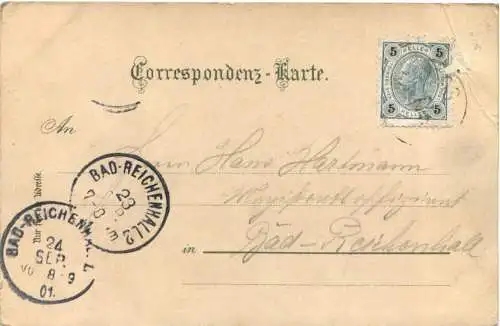 5 HELLER 5
5 HELLER 5
Correspondenz-Karte.
An
Herrn Hans Hartmann
Magistratsoffiziant
in Bad-Reichenhall
Nur Adresse.
BAD-REICHENHALL 2
23
7
BAD-REICHENHALL
24
SEP.
8-9
01.